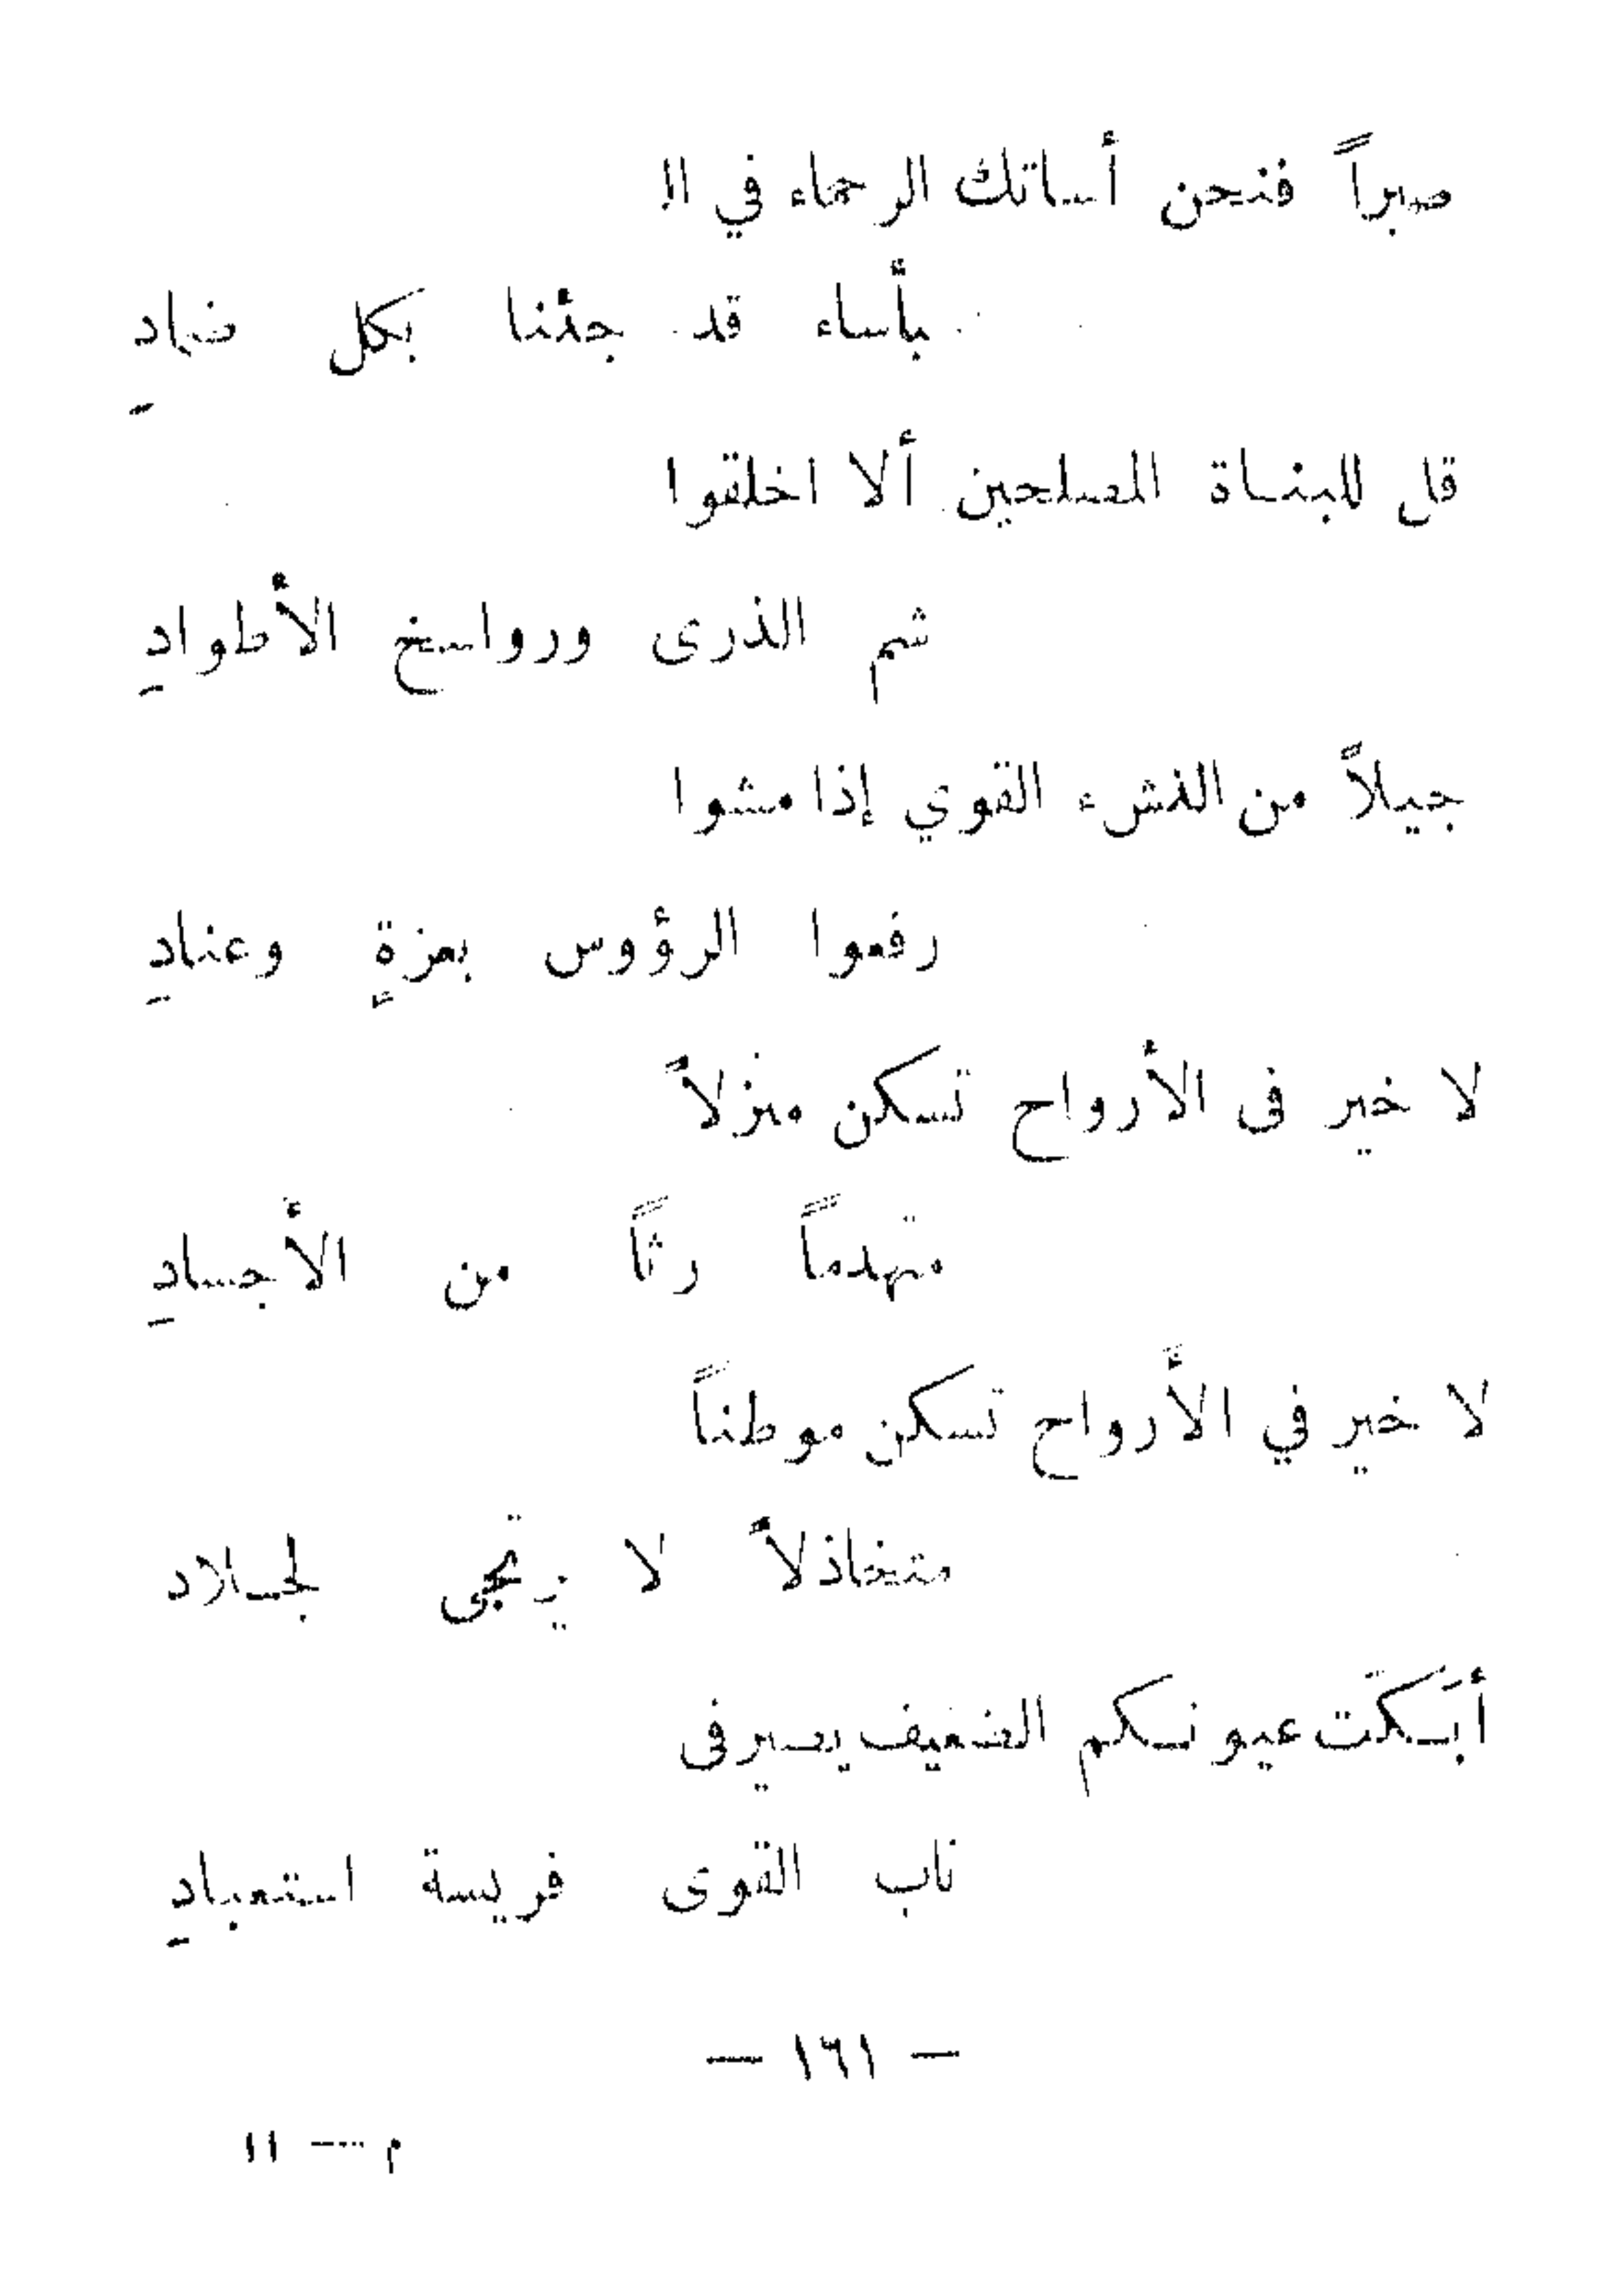 صبراً فنحن أساتك الرحماء في الـ
بأساء قد جئنا بكل ضمادِ
قل للبناة المصلحين ألا اخلقوا
شم الذرى ورواسخ الأطوادِ
جيلاً من النشء القوي إذا مشوا
رفعوا الرؤوس بعزةٍ وعنادِ
لا خير فى الأرواح تسكن منزلاً
متهدماً رثاً من الأجسادِ
لا خير في الأرواح تسكن موطناً
متخاذلاً لا يرتجى لجلاد
أبَكَت عيونكم الضعيف يصير فى
ناب القوى فريسة استعبادِ
— ١٦١ —
م — ١١